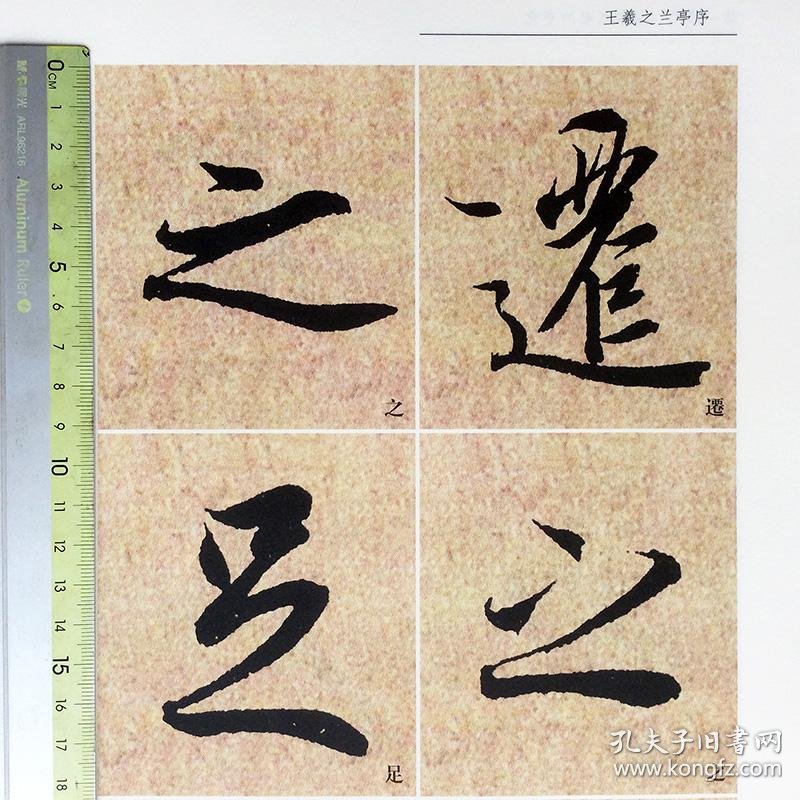 王羲之兰亭序
遷
之
之
足
遷
之
足
0CM
1
2
3
4
5
6
7
8
9
10
11
12
13
14
15
16
17
18
ARL96216
Aluminum Ruler
孔夫子旧书网
www.kongfz.com